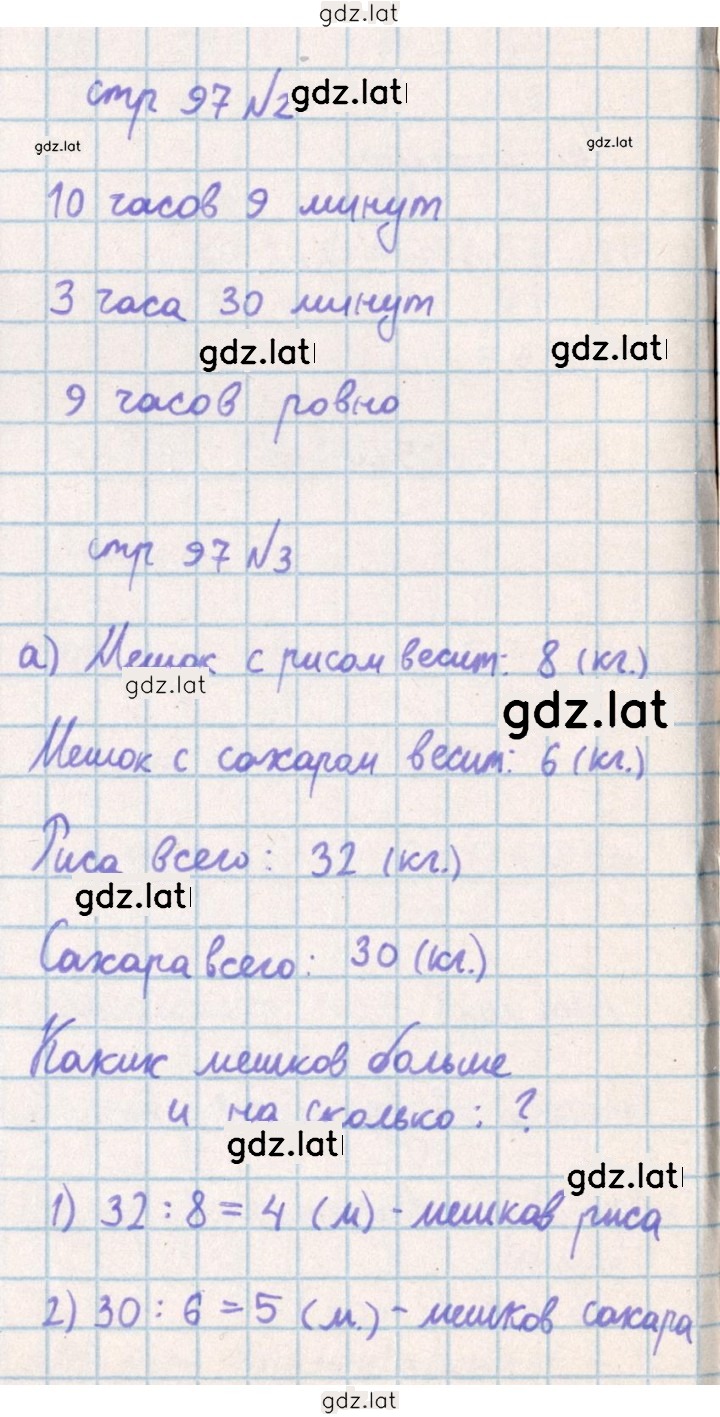 gdz.lat
стр 97 №2 gdz.lat
gdz.lat gdz.lat
10 часов 9 минут
3 часа 30 минут
gdz.lat gdz.lat
9 часов ровно
стр 97 №3
а) Мешок с рисом весит: 8 (кг.)
gdz.lat gdz.lat
Мешок с сахаром весит: 6 (кг.)
Риса всего: 32 (кг.)
gdz.lat
Сахара всего: 30 (кг.)
Каких мешков больше
и на сколько: ?
gdz.lat gdz.lat
1) 32 : 8 = 4 (м) - мешков риса
2) 30 : 6 = 5 (м.) - мешков сахара
gdz.lat